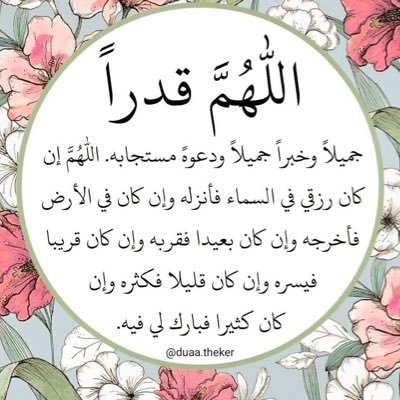 اللّٰهُمَّ قدراً
جميلاً وخبراً جميلاً ودعوةً مستجابه. اللّٰهُمَّ إن
كان رزقي في السماء فأنزله وإن كان في الأرض
فأخرجه وإن كان بعيدا فقربه وإن كان قريبا
فيسره وإن كان قليلا فكثره وإن
كان كثيرا فبارك لي فيه.
@duaa.theker